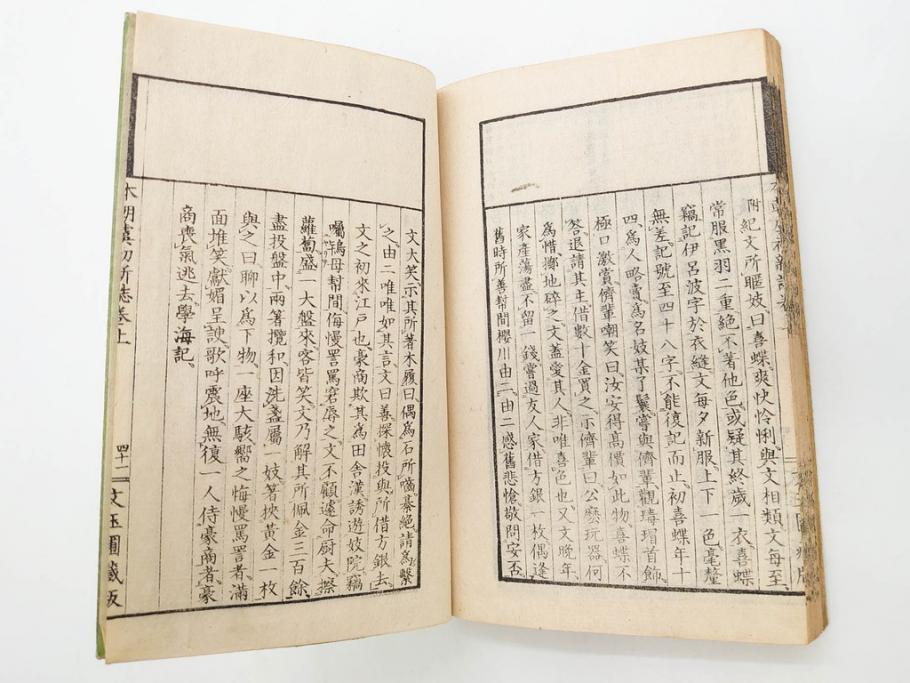 附紀文所暱妓曰喜蝶爽快怜悧與文相類文每至
常服黑羽二重絕不著他色或疑其終歲一衣喜蝶
竊記伊呂波字於衣縫文每夕新服上下一色毫釐
無差記號至四十八字不能復記而止初喜蝶年十
四爲人略賣爲名妓某了鬟嘗與儕輩觀瑇瑁首飾
極口激賞儕輩嘲笑曰汝安得高價如此物喜蝶不
答退請其主借數十金買之示儕輩曰公麼玩器何
爲惜擲地碎之文蓋愛其人非唯喜色也又文晚年
家產蕩盡不留一錢嘗過友人家借方銀一枚偶逢
舊時所善幇間櫻川由二由二感舊悲愴敬問安否
文大笑示其所著木履曰偶爲石所嚙綦絕請爲繫
之由二唯唯如其言文曰善探懷投與所借方銀去
文之初來江戶也豪商欺其爲田舍漢誘遊妓院竊
囑鴇母幇間侮慢詈罵窘辱之文不顧遽命厨夫擦
蘿蔔盛一大盤來客皆笑文乃解其所佩金三百餘
盡投盤中兩箸攪和因洗盞屬一妓箸挾黃金一枚
與之曰聊以爲下物一座大駭嚮之侮慢罵詈者滿
面堆笑獻媚呈諛歌呼震地無復一人侍豪商者豪
商喪氣逃去學海記
本朝虞初新誌卷上
四十二
文玉圃藏版